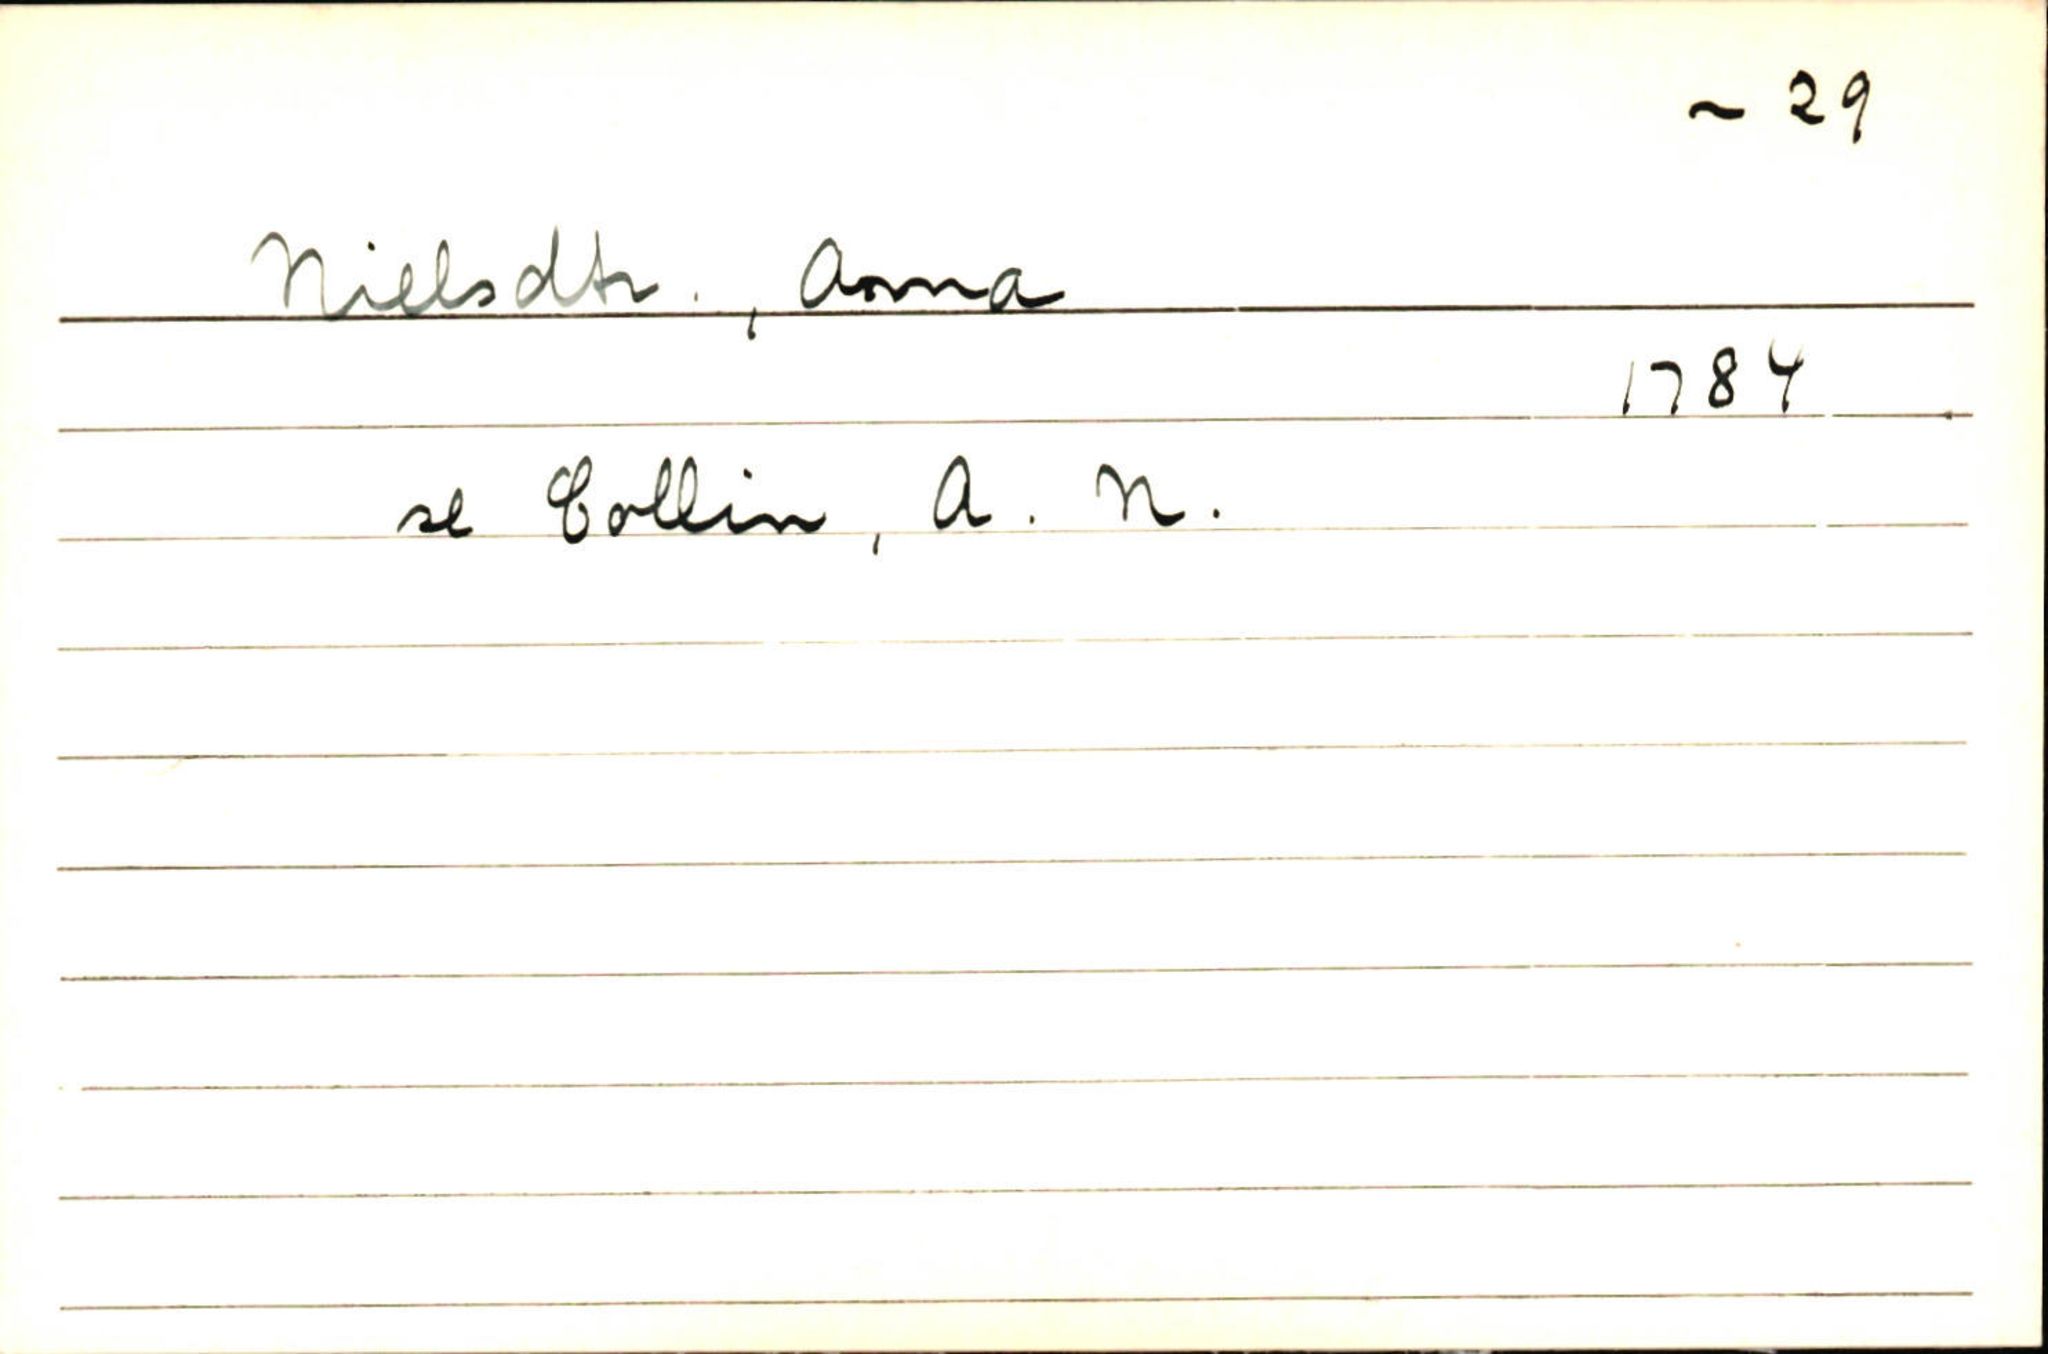 ~ 29
Nielsdtr., Anna
1784
se Collin, A. N.